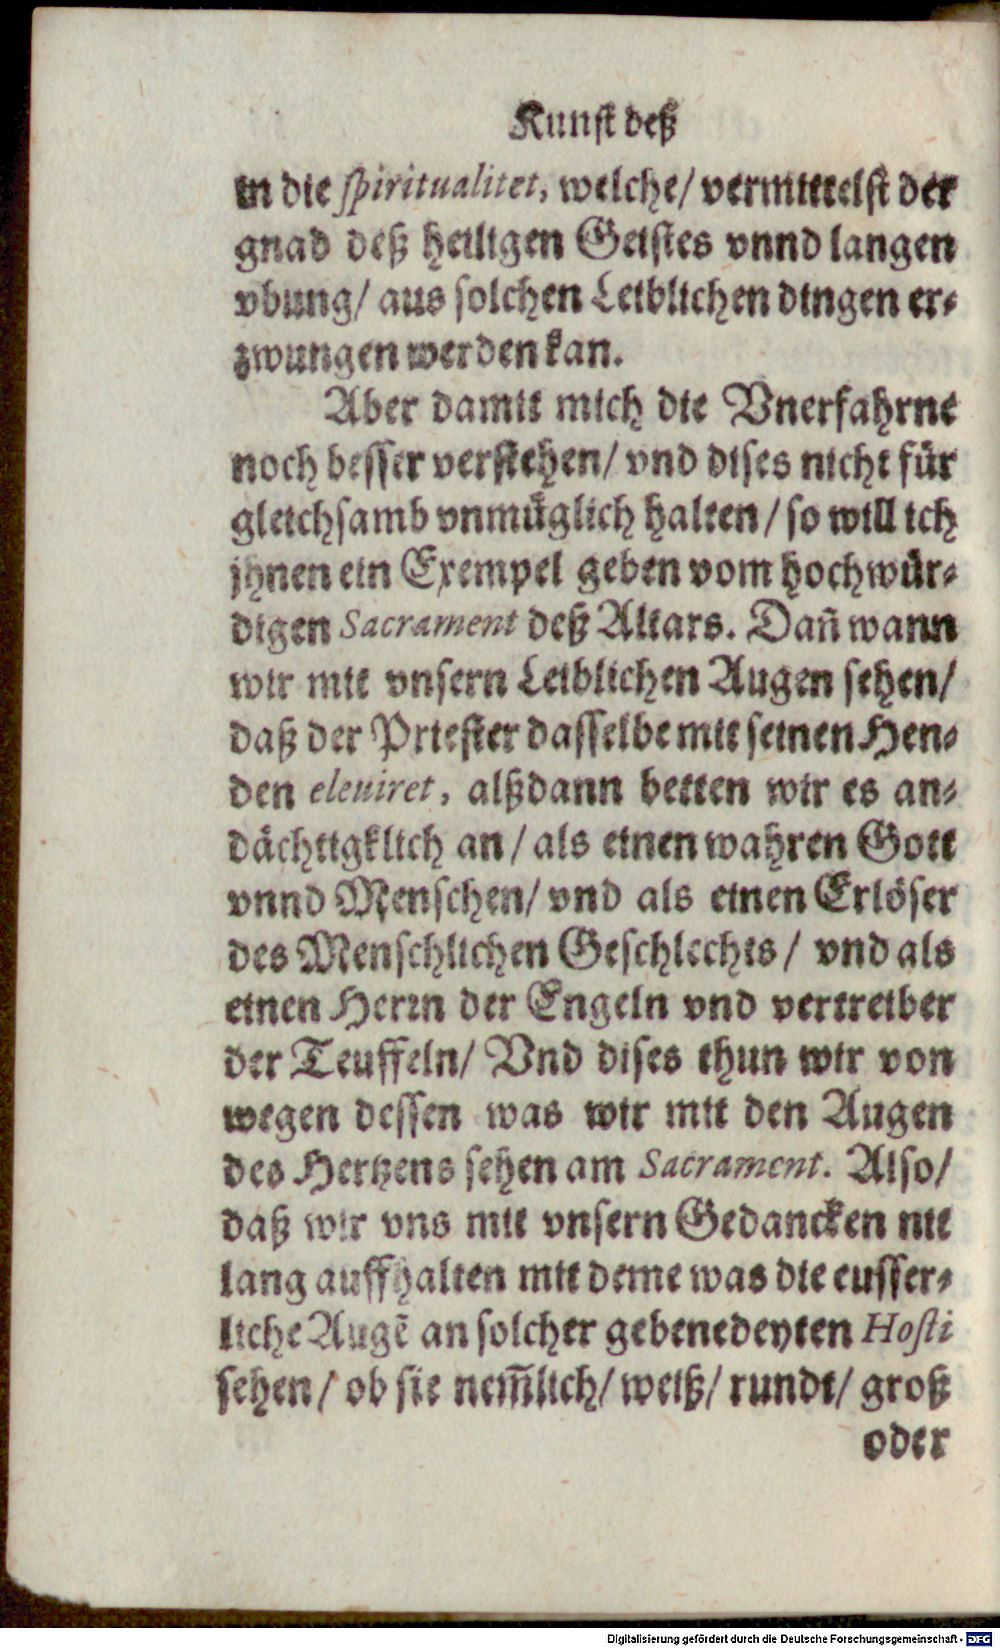 Kunst deß
in die spiritualitet, welche/ vermittelst der
gnad deß heiligen Geistes vnnd langen
vbung/ aus solchen Leiblichen dingen er-
zwungen werden kan.
Aber damit mich die Vnerfahrne
noch besser verstehen/ vnd dises nicht für
gleichsamb vnmüglich halten/ so will ich
jhnen ein Exempel geben vom hochwür-
digen Sacrament deß Altars. Dañ wann
wir mit vnsern Leiblichen Augen sehen/
daß der Priester dasselbe mit seinen Hen-
den eleuiret, alßdann betten wir es an-
dächtigklich an/ als einen wahren Gott
vnnd Menschen/ vnd als einen Erlöser
des Menschlichen Geschlechts/ vnd als
einen Herrn der Engeln vnd vertreiber
der Teuffeln/ Vnd dises thun wir von
wegen dessen was wir mit den Augen
des Hertzens sehen am Sacrament. Also/
daß wir vns mit vnsern Gedancken nit
lang auffhalten mit deme was die eusser-
liche Augē an solcher gebenedeyten Hosti
sehen/ ob sie nem̃lich/ weiß/ rundt/ groß
oder
Digitalisierung gefördert durch die Deutsche Forschungsgemeinschaft - DFG